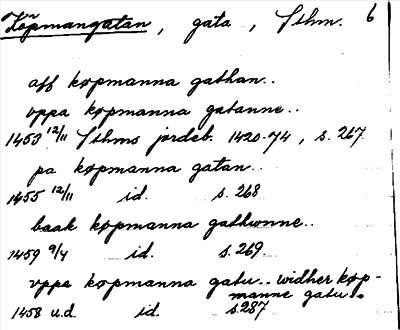 Köpmangatan, gata, Sthm. 6
aff køpmanna gathan..
vppa køpmanna gatanne..
1453 12/11 Sthms jordeb. 1420-74, s. 267
pa køpmanna gatan..
1455 12/11 id. s. 268
baak køpmanna gathwnne..
1459 9/4 id. s. 269
vppa køpmanna gatu.. widher køp-
manne gatu..
1458 u.d. id. s. 287